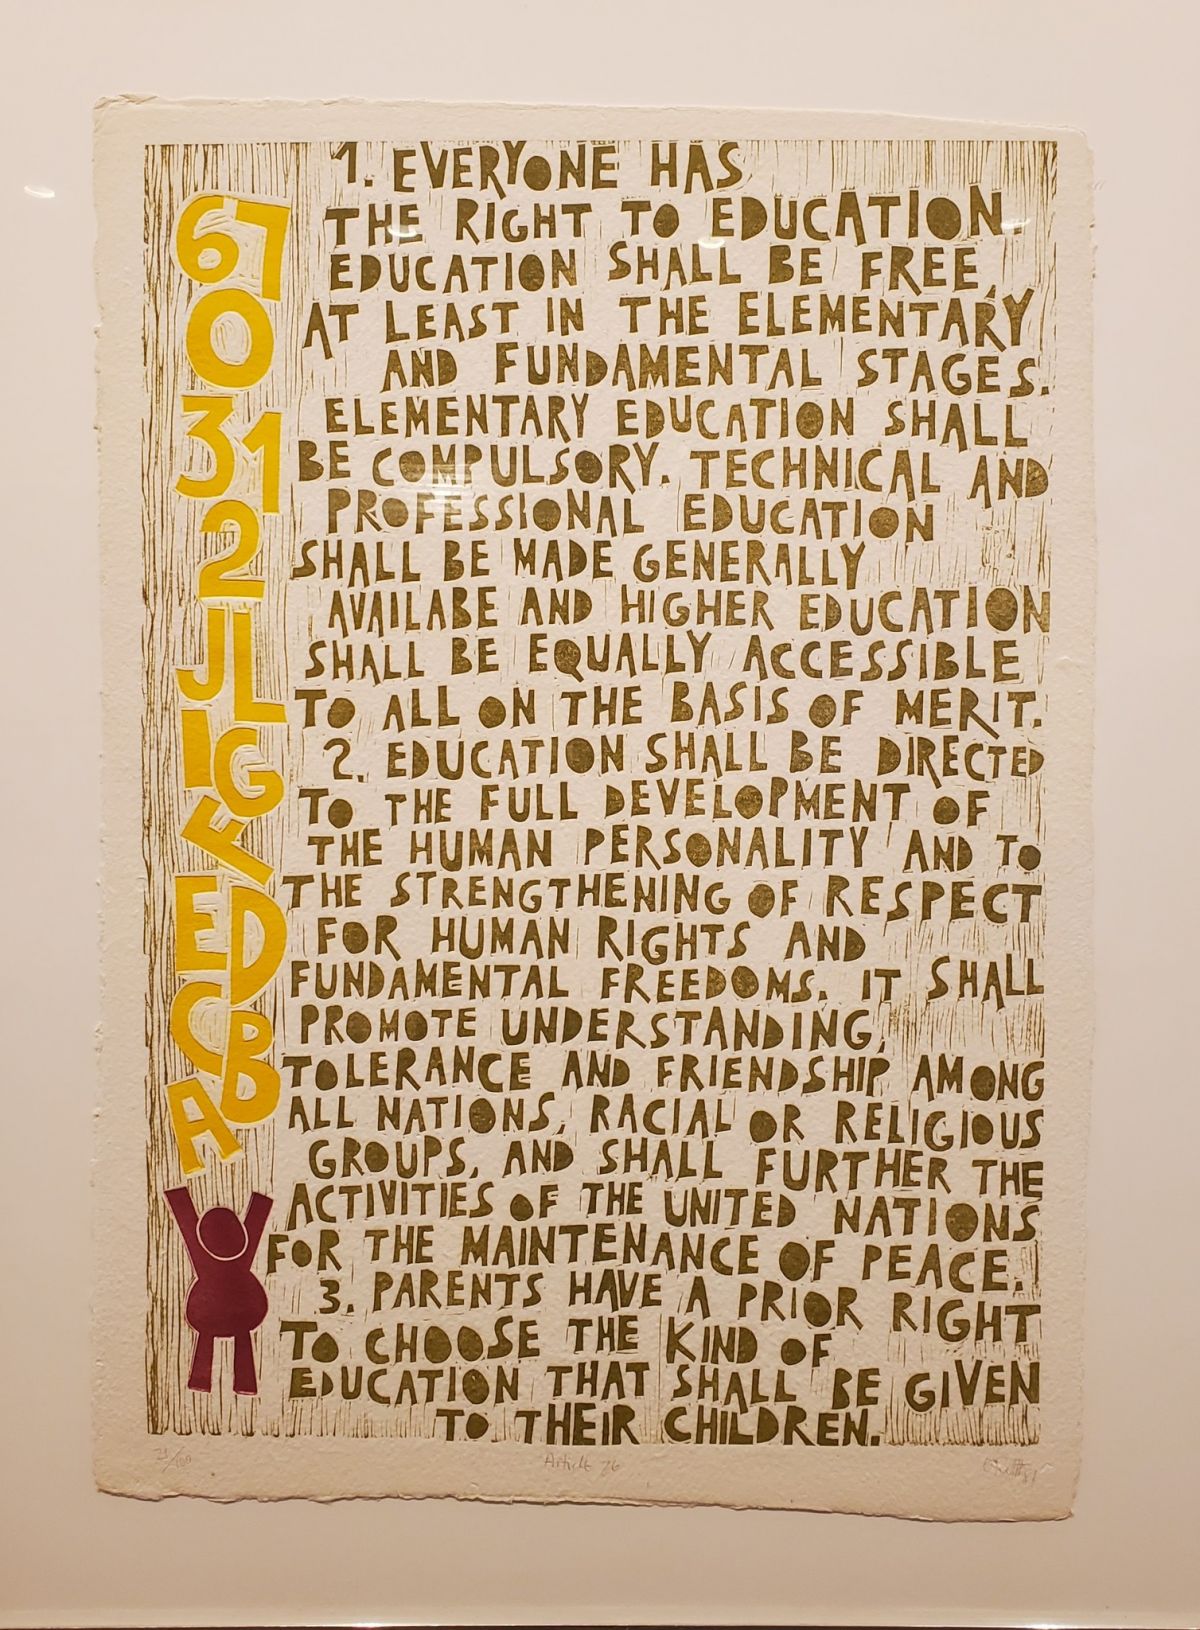 1. EVERYONE HAS
THE RIGHT TO EDUCATION.
EDUCATION SHALL BE FREE,
AT LEAST IN THE ELEMENTARY
AND FUNDAMENTAL STAGES.
ELEMENTARY EDUCATION SHALL
BE COMPULSORY. TECHNICAL AND
PROFESSIONAL EDUCATION
SHALL BE MADE GENERALLY
AVAILABE AND HIGHER EDUCATION
SHALL BE EQUALLY ACCESSIBLE
TO ALL ON THE BASIS OF MERIT.
2. EDUCATION SHALL BE DIRECTED
TO THE FULL DEVELOPMENT OF
THE HUMAN PERSONALITY AND TO
THE STRENGTHENING OF RESPECT
FOR HUMAN RIGHTS AND
FUNDAMENTAL FREEDOMS. IT SHALL
PROMOTE UNDERSTANDING,
TOLERANCE AND FRIENDSHIP AMONG
ALL NATIONS, RACIAL OR RELIGIOUS
GROUPS, AND SHALL FURTHER THE
ACTIVITIES OF THE UNITED NATIONS
FOR THE MAINTENANCE OF PEACE.
3. PARENTS HAVE A PRIOR RIGHT
TO CHOOSE THE KIND OF
EDUCATION THAT SHALL BE GIVEN
TO THEIR CHILDREN.
67
0
31
2
JL
IG
F
ED
CB
A
Article 26